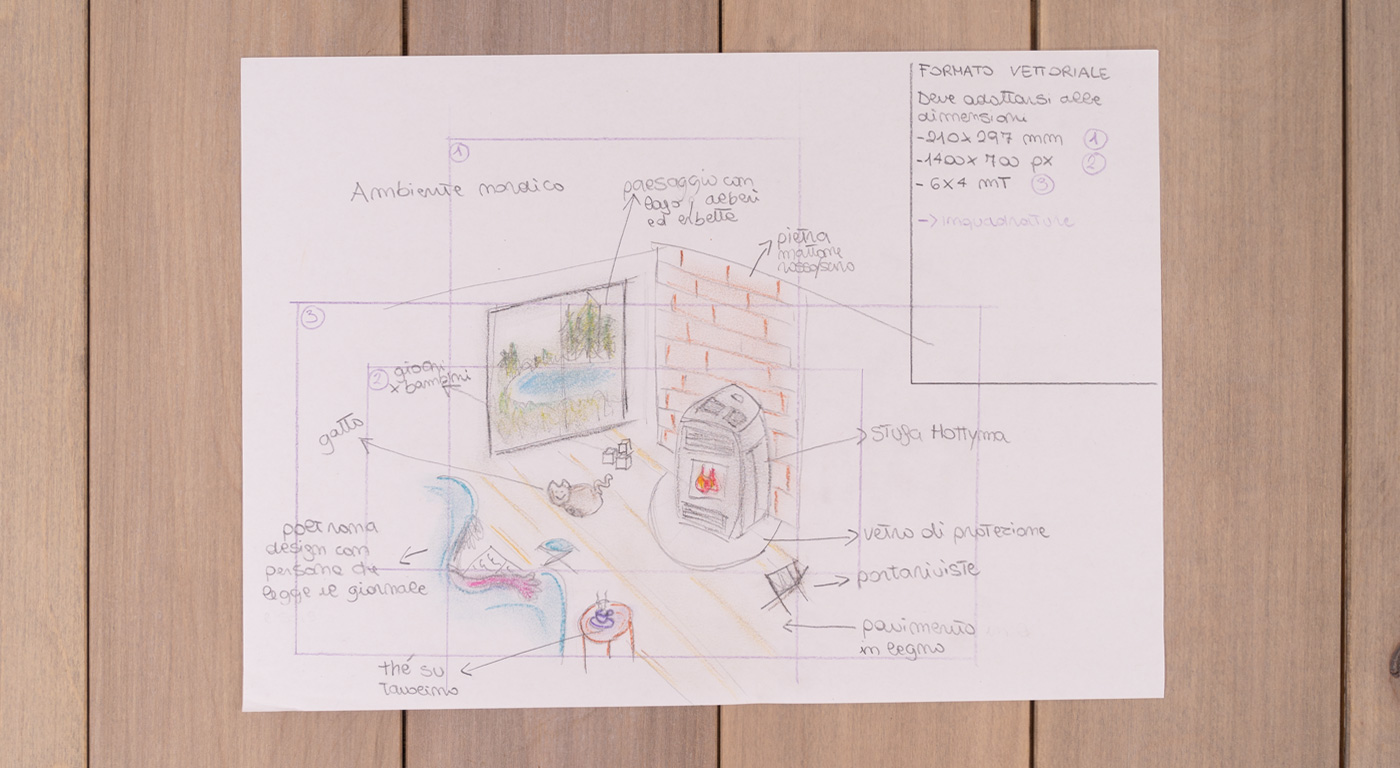 FORMATO VETTORIALE
Deve adattarsi alle
dimensioni
-210x297 mm 1
-1400x700 px 2
- 6x4 mT 3
-> inquadrature
1
Ambiente nordico
paesaggio con
lago, alberi
ed erbette
pietra
mattone
rosso/scuro
3
2
giochi
x bambini
gatto
stufa Hottyma
poltrona
design con
persona che
legge il giornale
vetro di protezione
portariviste
pavimento
in legno
thé su
tavolino